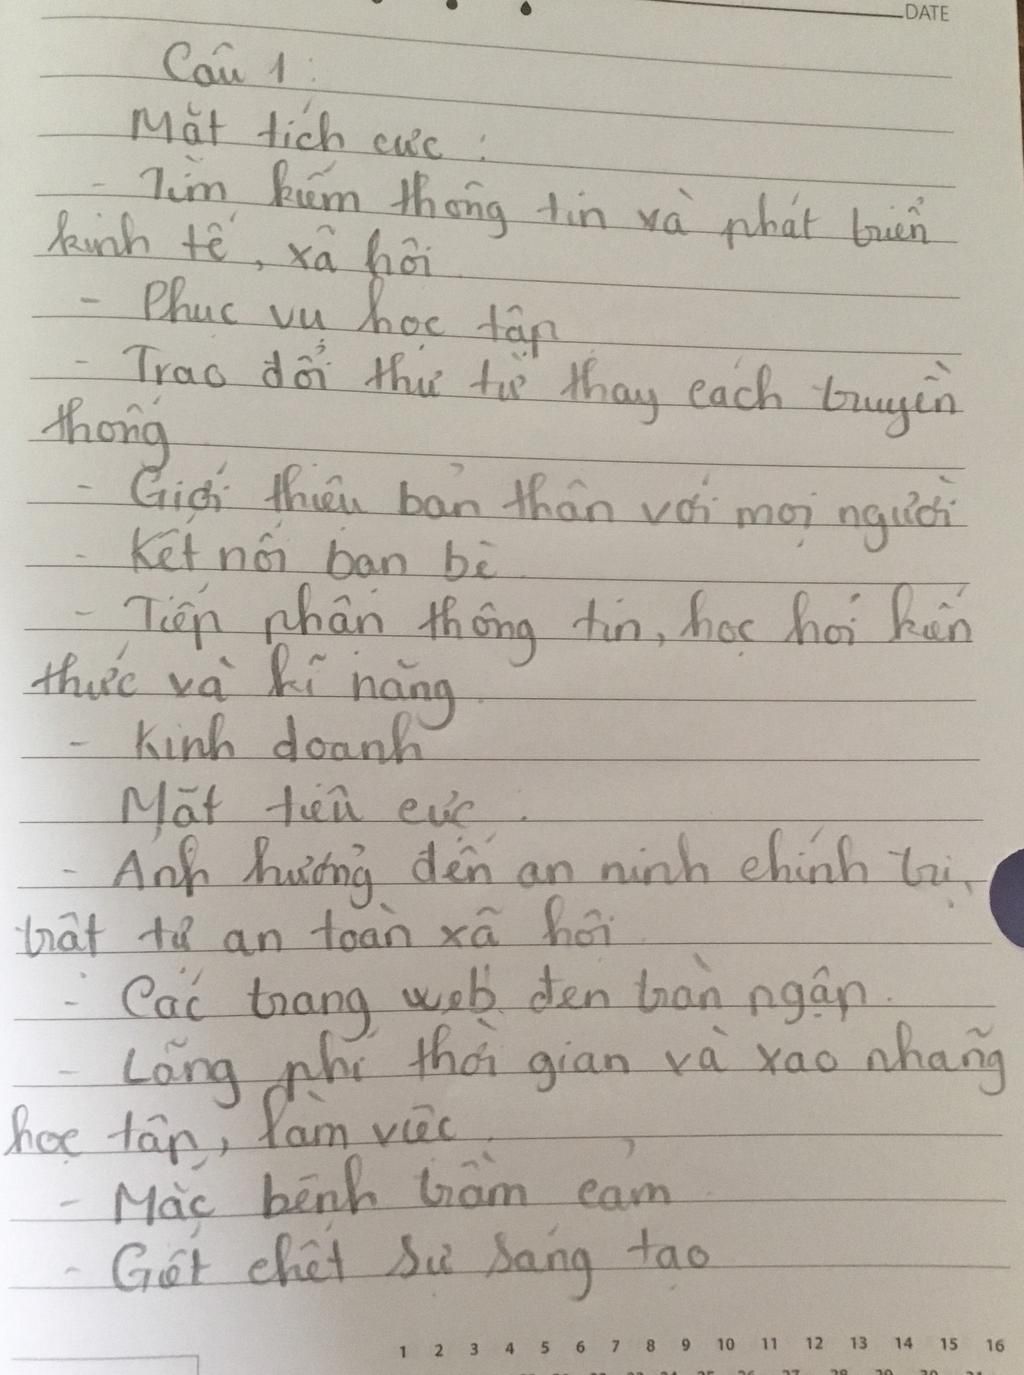 DATE
Câu 1:
Mặt tích cực:
- Tìm kiếm thông tin và phát triển
kinh tế, xã hội
- Phục vụ học tập
- Trao đổi thư từ thay cách truyền
thống
- Giới thiệu bản thân với mọi người
- Kết nối bạn bè
- Tiếp nhận thông tin, học hỏi kiến
thức và kĩ năng
- Kinh doanh
Mặt tiêu cực.
- Ảnh hưởng đến an ninh chính trị,
trật tự an toàn xã hội
- Các trang web đen tràn ngập.
- Lãng phí thời gian và xao nhãng
học tập, làm việc.
- Mắc bệnh trầm cảm
- Giết chết sự sáng tạo
1 2 3 4 5 6 7 8 9 10 11 12 13 14 15 16